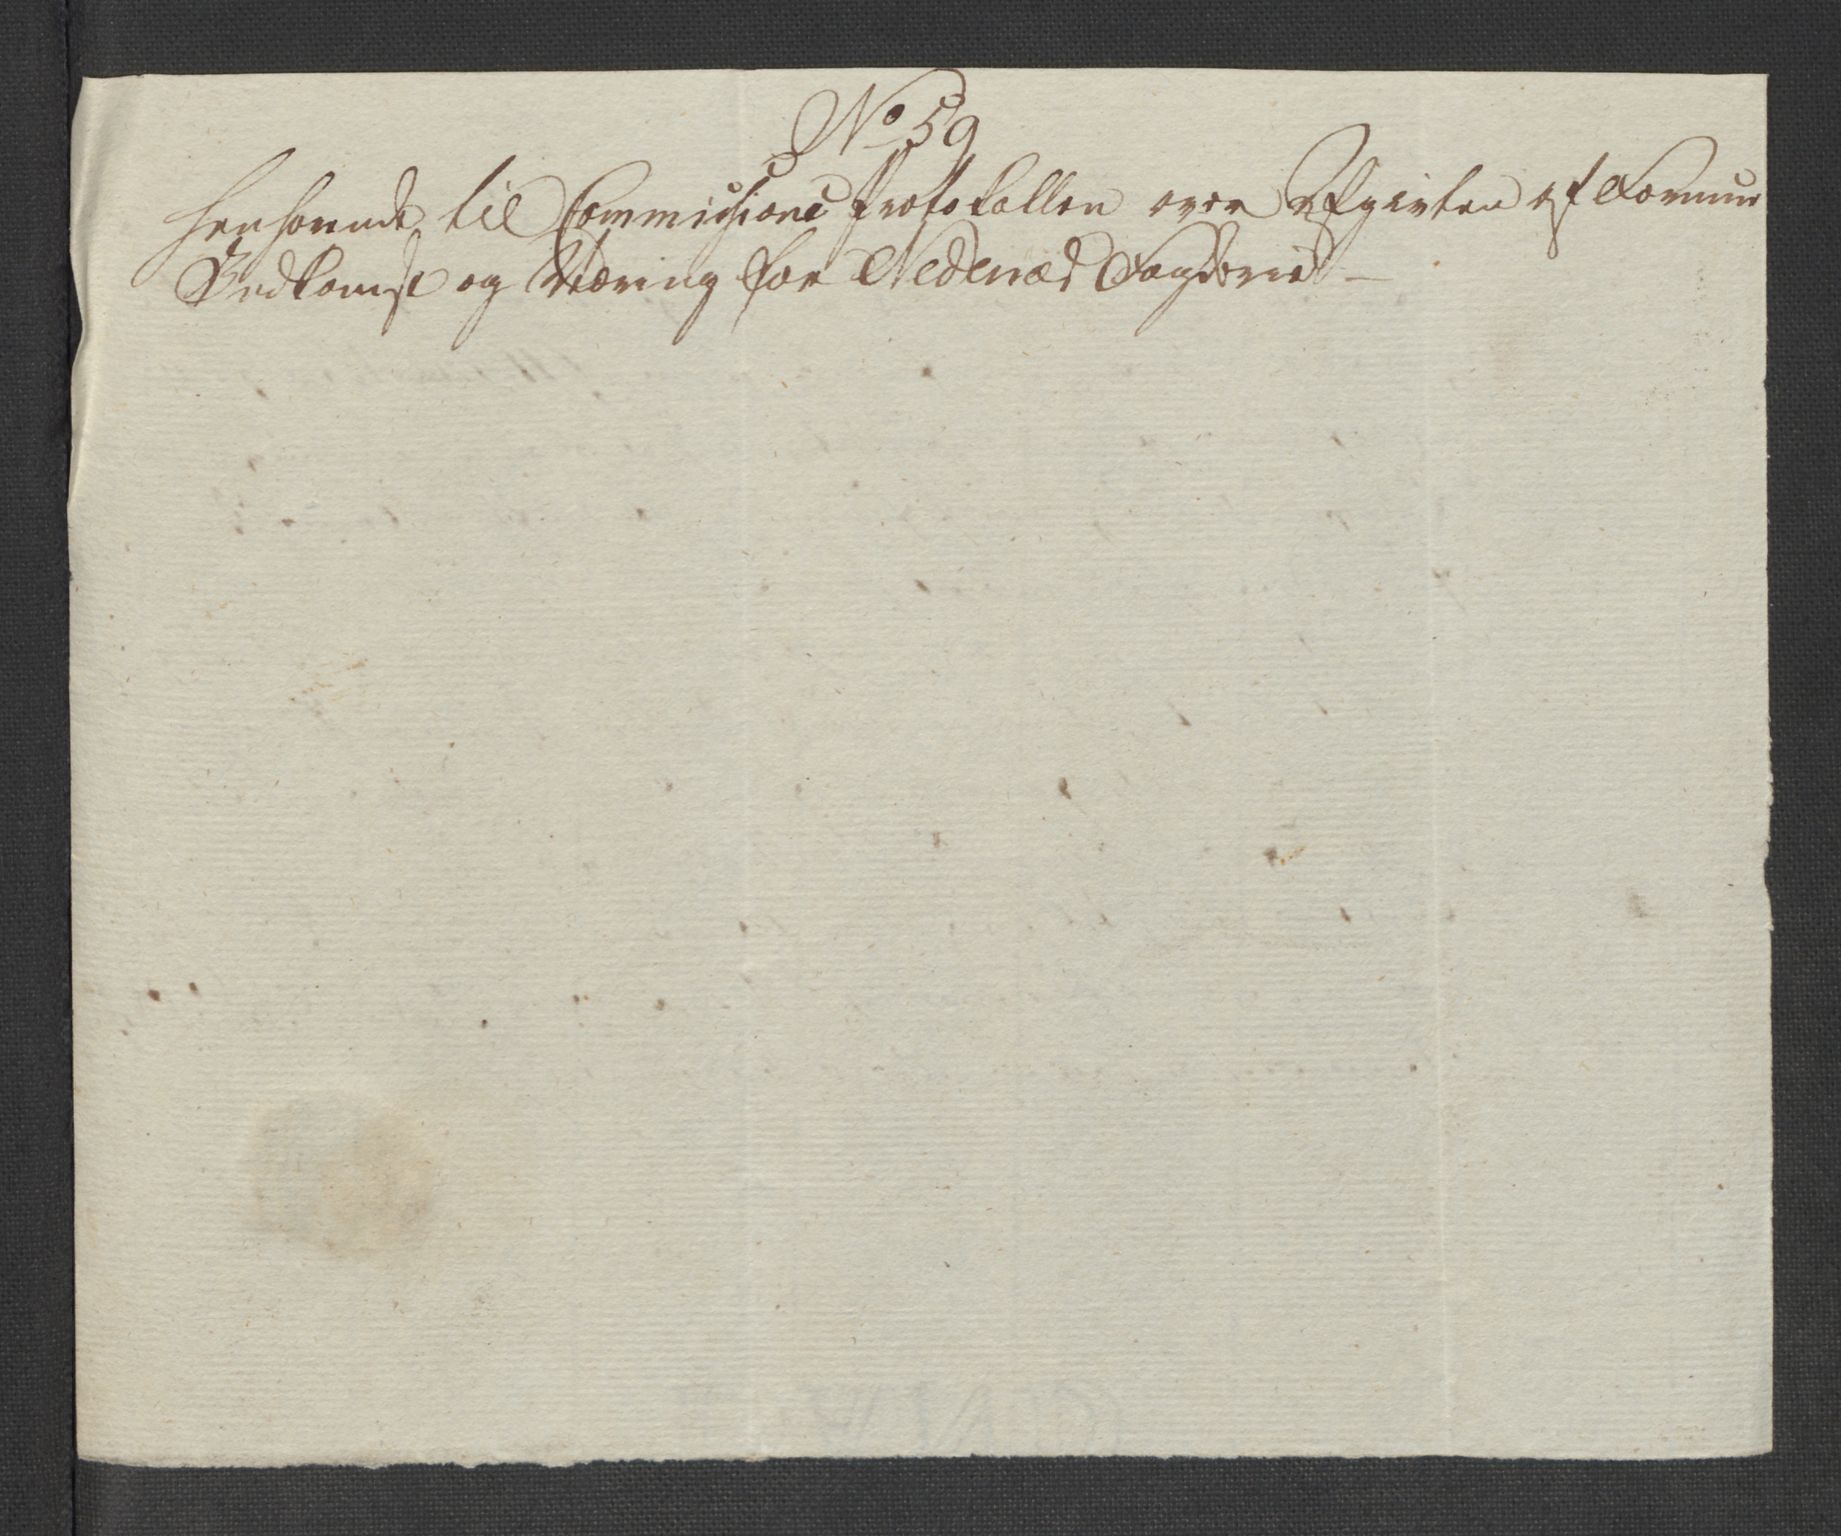 No 59
henhørende til Commissions Protokollen over Afgivten af Formue
Indkomst og Næring for Nedenæs Fogderie